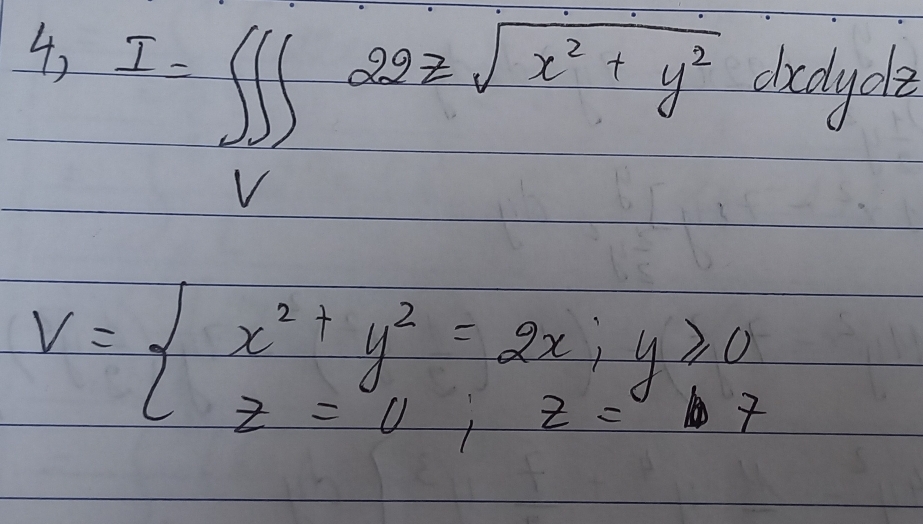 4, I = ∭ 22z √(x² + y²) dxdydz
V
V = { x² + y² = 2x ; y ⩾ 0
z = 0 ; z = 7